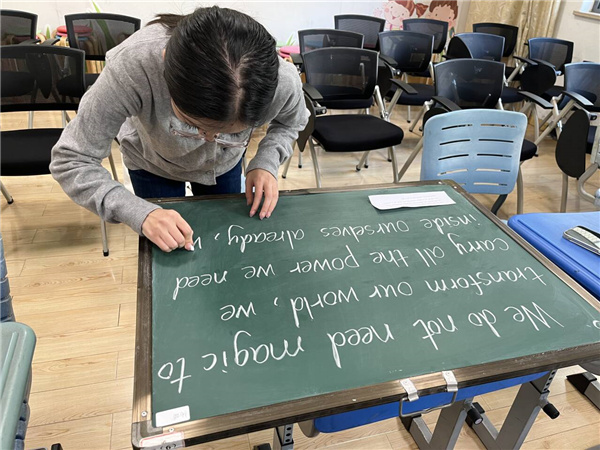 We do not need magic to
transform our world, we
carry all the power we need
inside ourselves already,